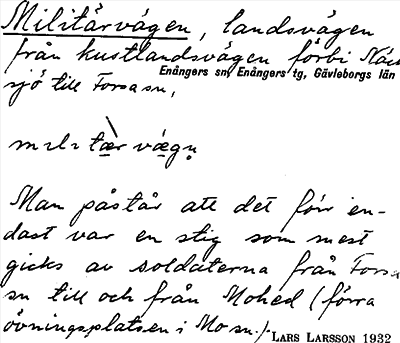 Militärvägen, landsvägen
från kustlandsvägen förbi Näs-
Enångers sn, Enångers tg, Gävleborgs län
sjö till Forsa sn,
mɩlɩtæ̀r vægn̥
Man påstår att det förr en-
dast var en stig som mest
gicks av soldaterna från Forsa
sn till och från Mohed (förra
övningsplatsen i Mo sn.).
LARS LARSSON 1932